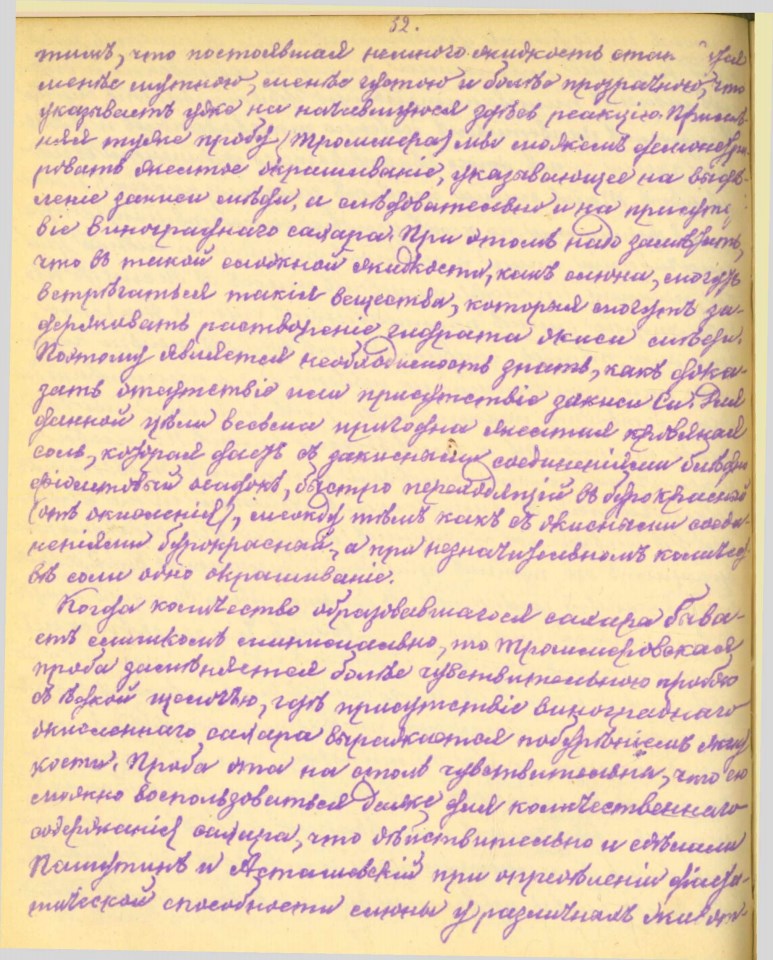 52.
тимъ, что постоявшая немного жидкость стан
менѣе мутною, менѣе густою и болѣе прозрачной, что
указываетъ уже на начавшуюся здѣсь реакцію. Примѣ-
няя туже пробу (Троммера) мы можемъ демонстри-
ровать желтое окрашиваніе, указывающее на выдѣ-
леніе закиси мѣди, и слѣдовательно и на присутс
віе винограднаго сахара. При этомъ надо замѣтить,
что въ такой сложной жидкости, какъ слюна, могутъ
встрѣчаться такія вещества, которыя могутъ за-
держивать раствореніе гидрата окиси мѣди.
Поэтому является необходимость знать, какъ дока-
зать отсутствіе или присутствіе закиси Cu. Для
данной цѣли весьма пригодна желтая кровяная
соль, которая даетъ съ закисными соединеніями блѣдно
фіолетовый осадокъ, быстро переходящій въ бурокрасный
(отъ окисленія), между тѣмъ какъ съ окисными соеди-
неніями бурокрасный, а при незначительномъ количест
вѣ соли одно окрашиваніе.
Когда количество образовавшагося сахара быва-
етъ слишкомъ минимально, то Троммеровская
проба замѣняется болѣе чувствительною пробою
съ ѣдкой щелочью, гдѣ присутствіе винограднаго
окисленнаго сахара выражается побурѣніемъ жид
кости. Проба эта на столь чувствительна, что ею
можно воспользоваться даже для количественнаго
содержанія сахара, что дѣйствительно и сдѣлали
Пашутинъ и Асташевскій при опредѣленіи діаста-
тической способности слюны у различныхъ живот-